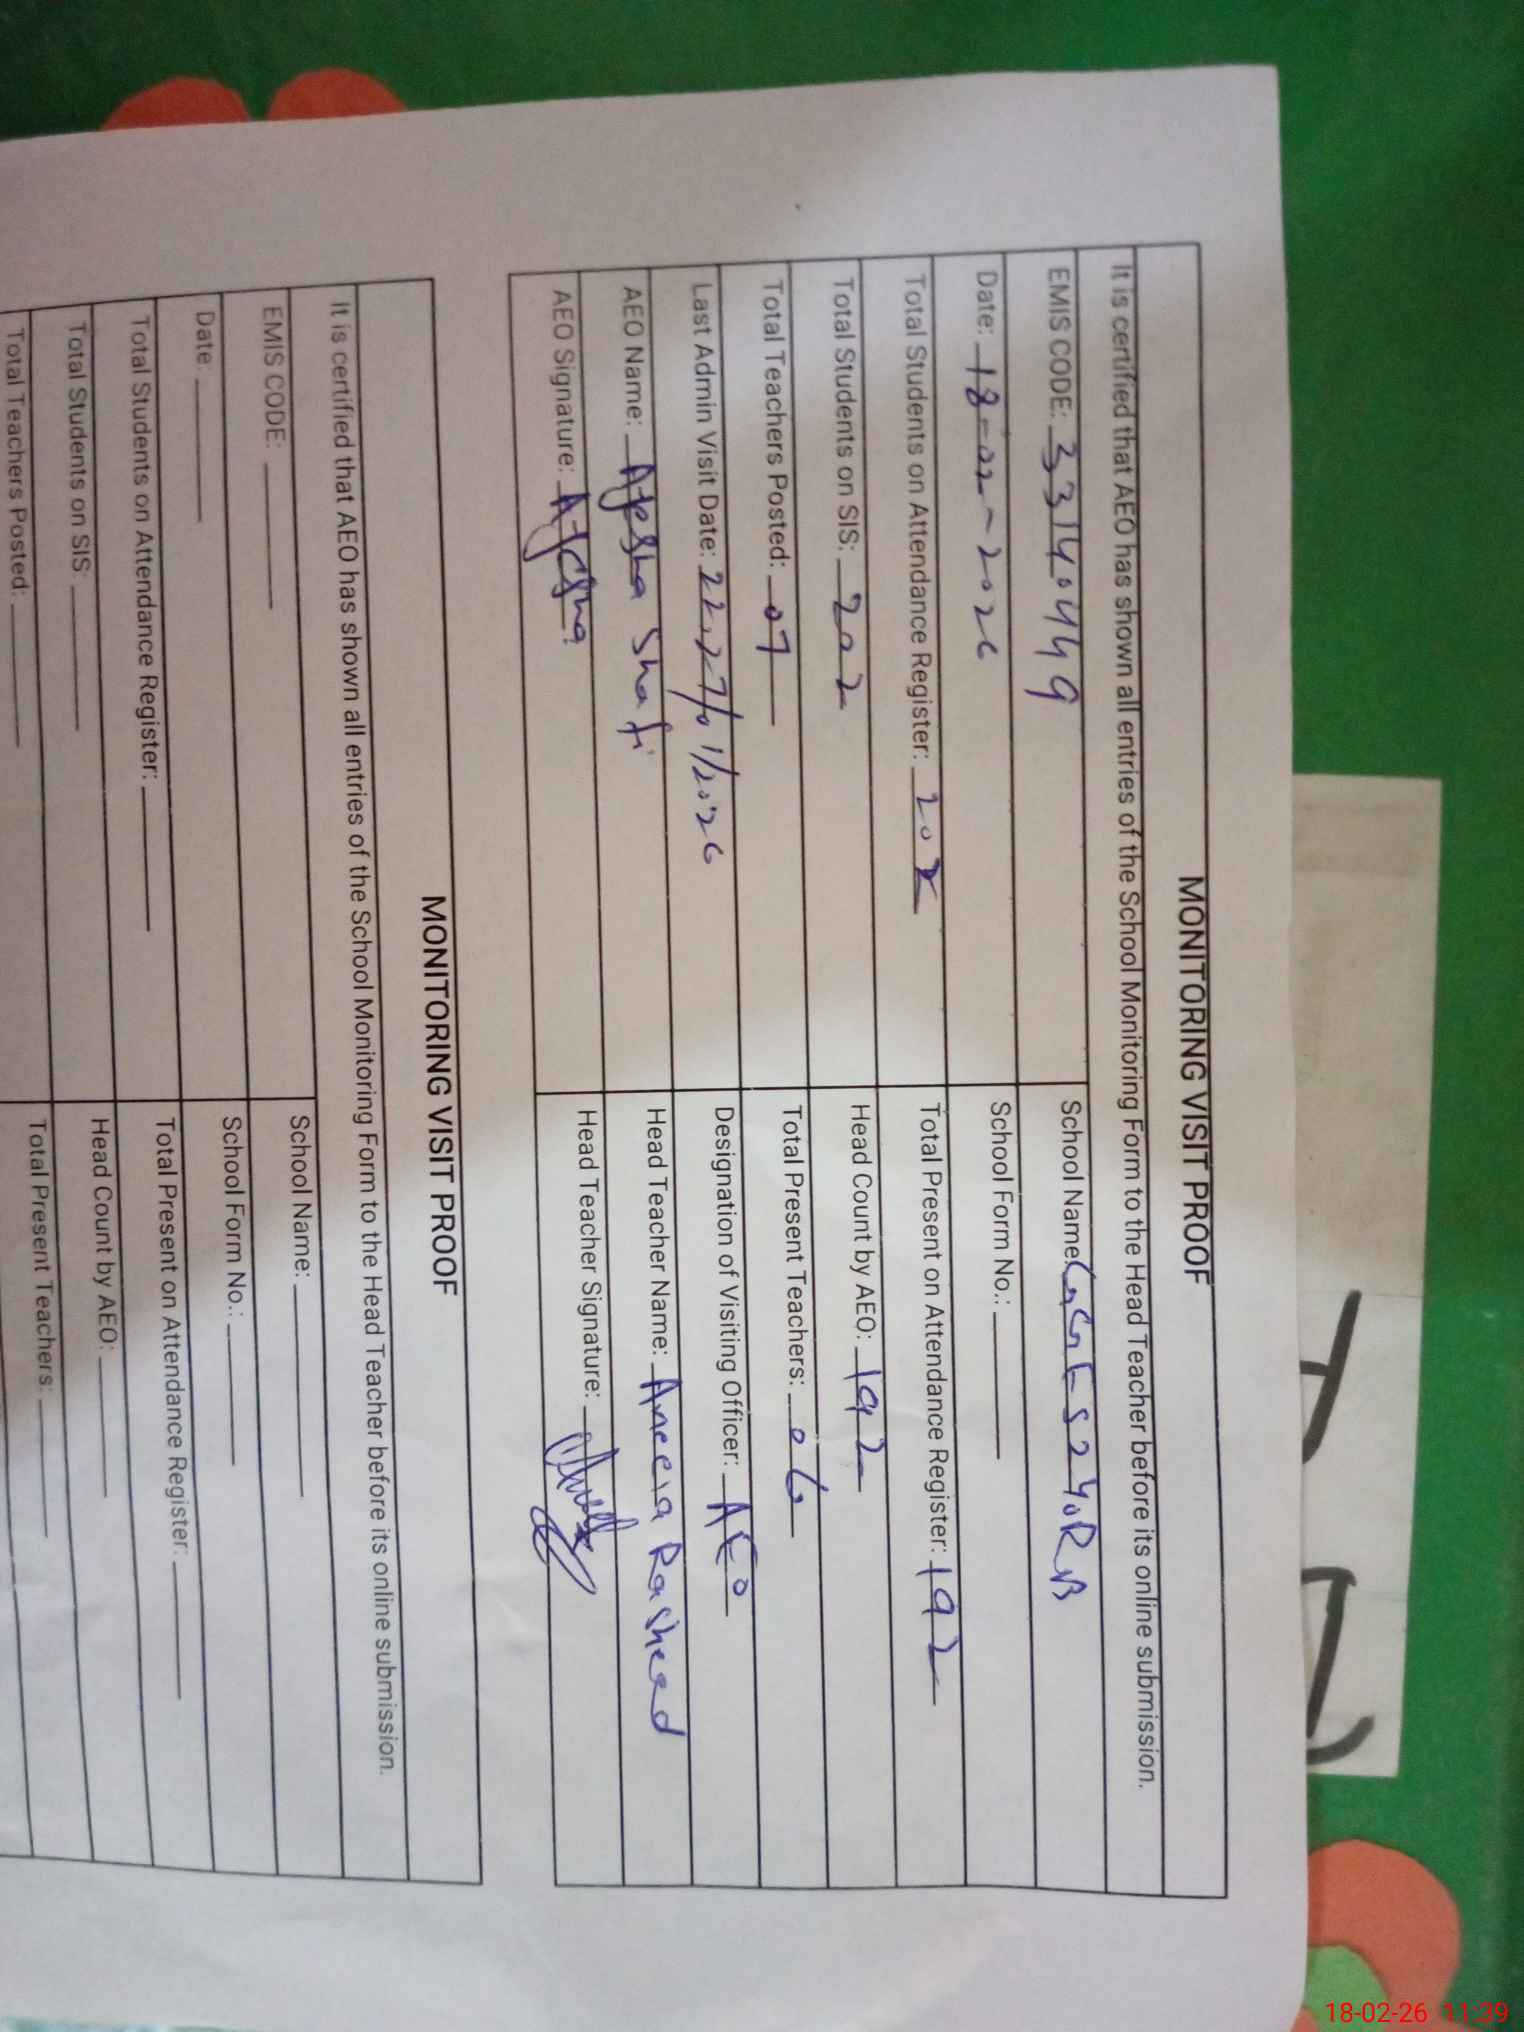 MONITORING VISIT PROOF
It is certified that AEO has shown all entries of the School Monitoring Form to the Head Teacher before its online submission.
EMIS CODE: 33140449 School Name: GGES 240RB
Date: 18-02-2026 School Form No.:
Total Students on Attendance Register: 202 Total Present on Attendance Register: 192
Total Students on SIS: 202 Head Count by AEO: 192
Total Teachers Posted: 07 Total Present Teachers: 06
Last Admin Visit Date: /01/2026 Designation of Visiting Officer: AEO
AEO Name: Ayesha Shafi Head Teacher Name: Aneela Rasheed
AEO Signature: Ayesha Head Teacher Signature:
MONITORING VISIT PROOF
It is certified that AEO has shown all entries of the School Monitoring Form to the Head Teacher before its online submission.
EMIS CODE: School Name:
Date: School Form No.:
Total Students on Attendance Register: Total Present on Attendance Register:
Total Students on SIS: Head Count by AEO:
Total Teachers Posted: Total Present Teachers:
18-02-26 11:39